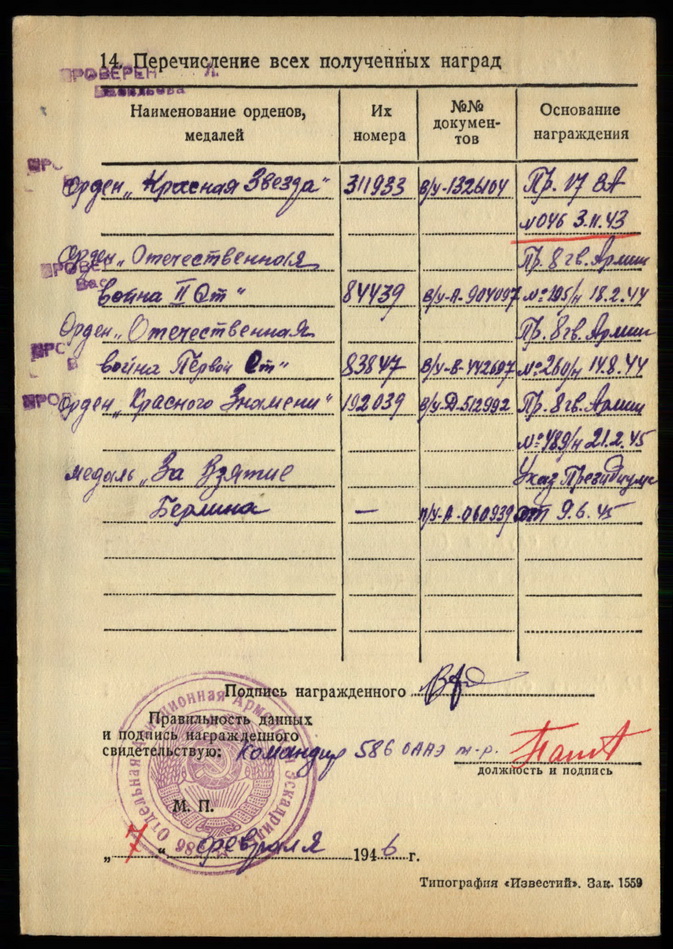 14. Перечисление всех полученных наград
ПРОВЕРЕН
Наименование орденов, медалей
Их номера
№№ документов
Основание награждения
Орден „Красная Звезда" 311933 В/у-1326104 Пр. 17 ВА
№046 3.11.43
Орден „Отечественная Пр. 8 гв. Армии
война II Ст" 84439 В/у-А-904097 №195/н 18.2.44
Орден „Отечественная Пр. 8 гв. Армии
война Первой Ст" 83847 В/у-В-442697 №260/н 14.8.44
Орден „Красного Знамени" 192039 В/у-Д-512992 Пр. 8 гв. Армии
№489/н 21.2.45
медаль „За Взятие Указ Президиума
Берлина — п/у-А-060939 от 9.6.45
Подпись награжденного
Правильность данных
и подпись награжденного
свидетельствую: Командир 586 ОААЭ м-р.
должность и подпись
М. П.
„7" февраля 1946 г.
Типография «Известий». Зак. 1559